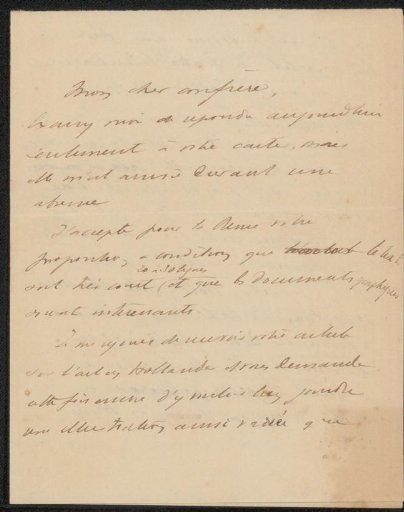 Mon cher confrère,
Excusez moi de répondre aujourd'hui
seulement à votre carte, mais
elle m'est arrivée durant une
absence
J'accepte pour la Revue votre
proposition, à condition que le texte
soit très court (et que les documents graphiques
soient intéressants
de recevoir votre article
sur l'art en Hollande
cette fois encore d'y joindre
une illustration aussi variée que